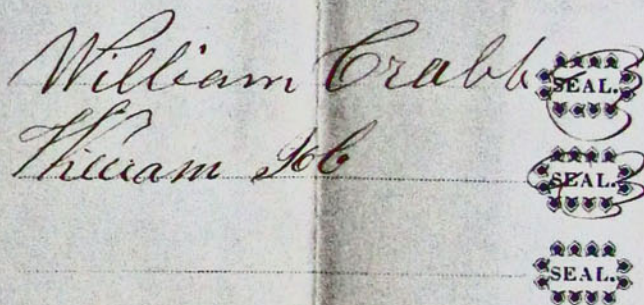 William Crabb SEAL.
William Job SEAL.
SEAL.